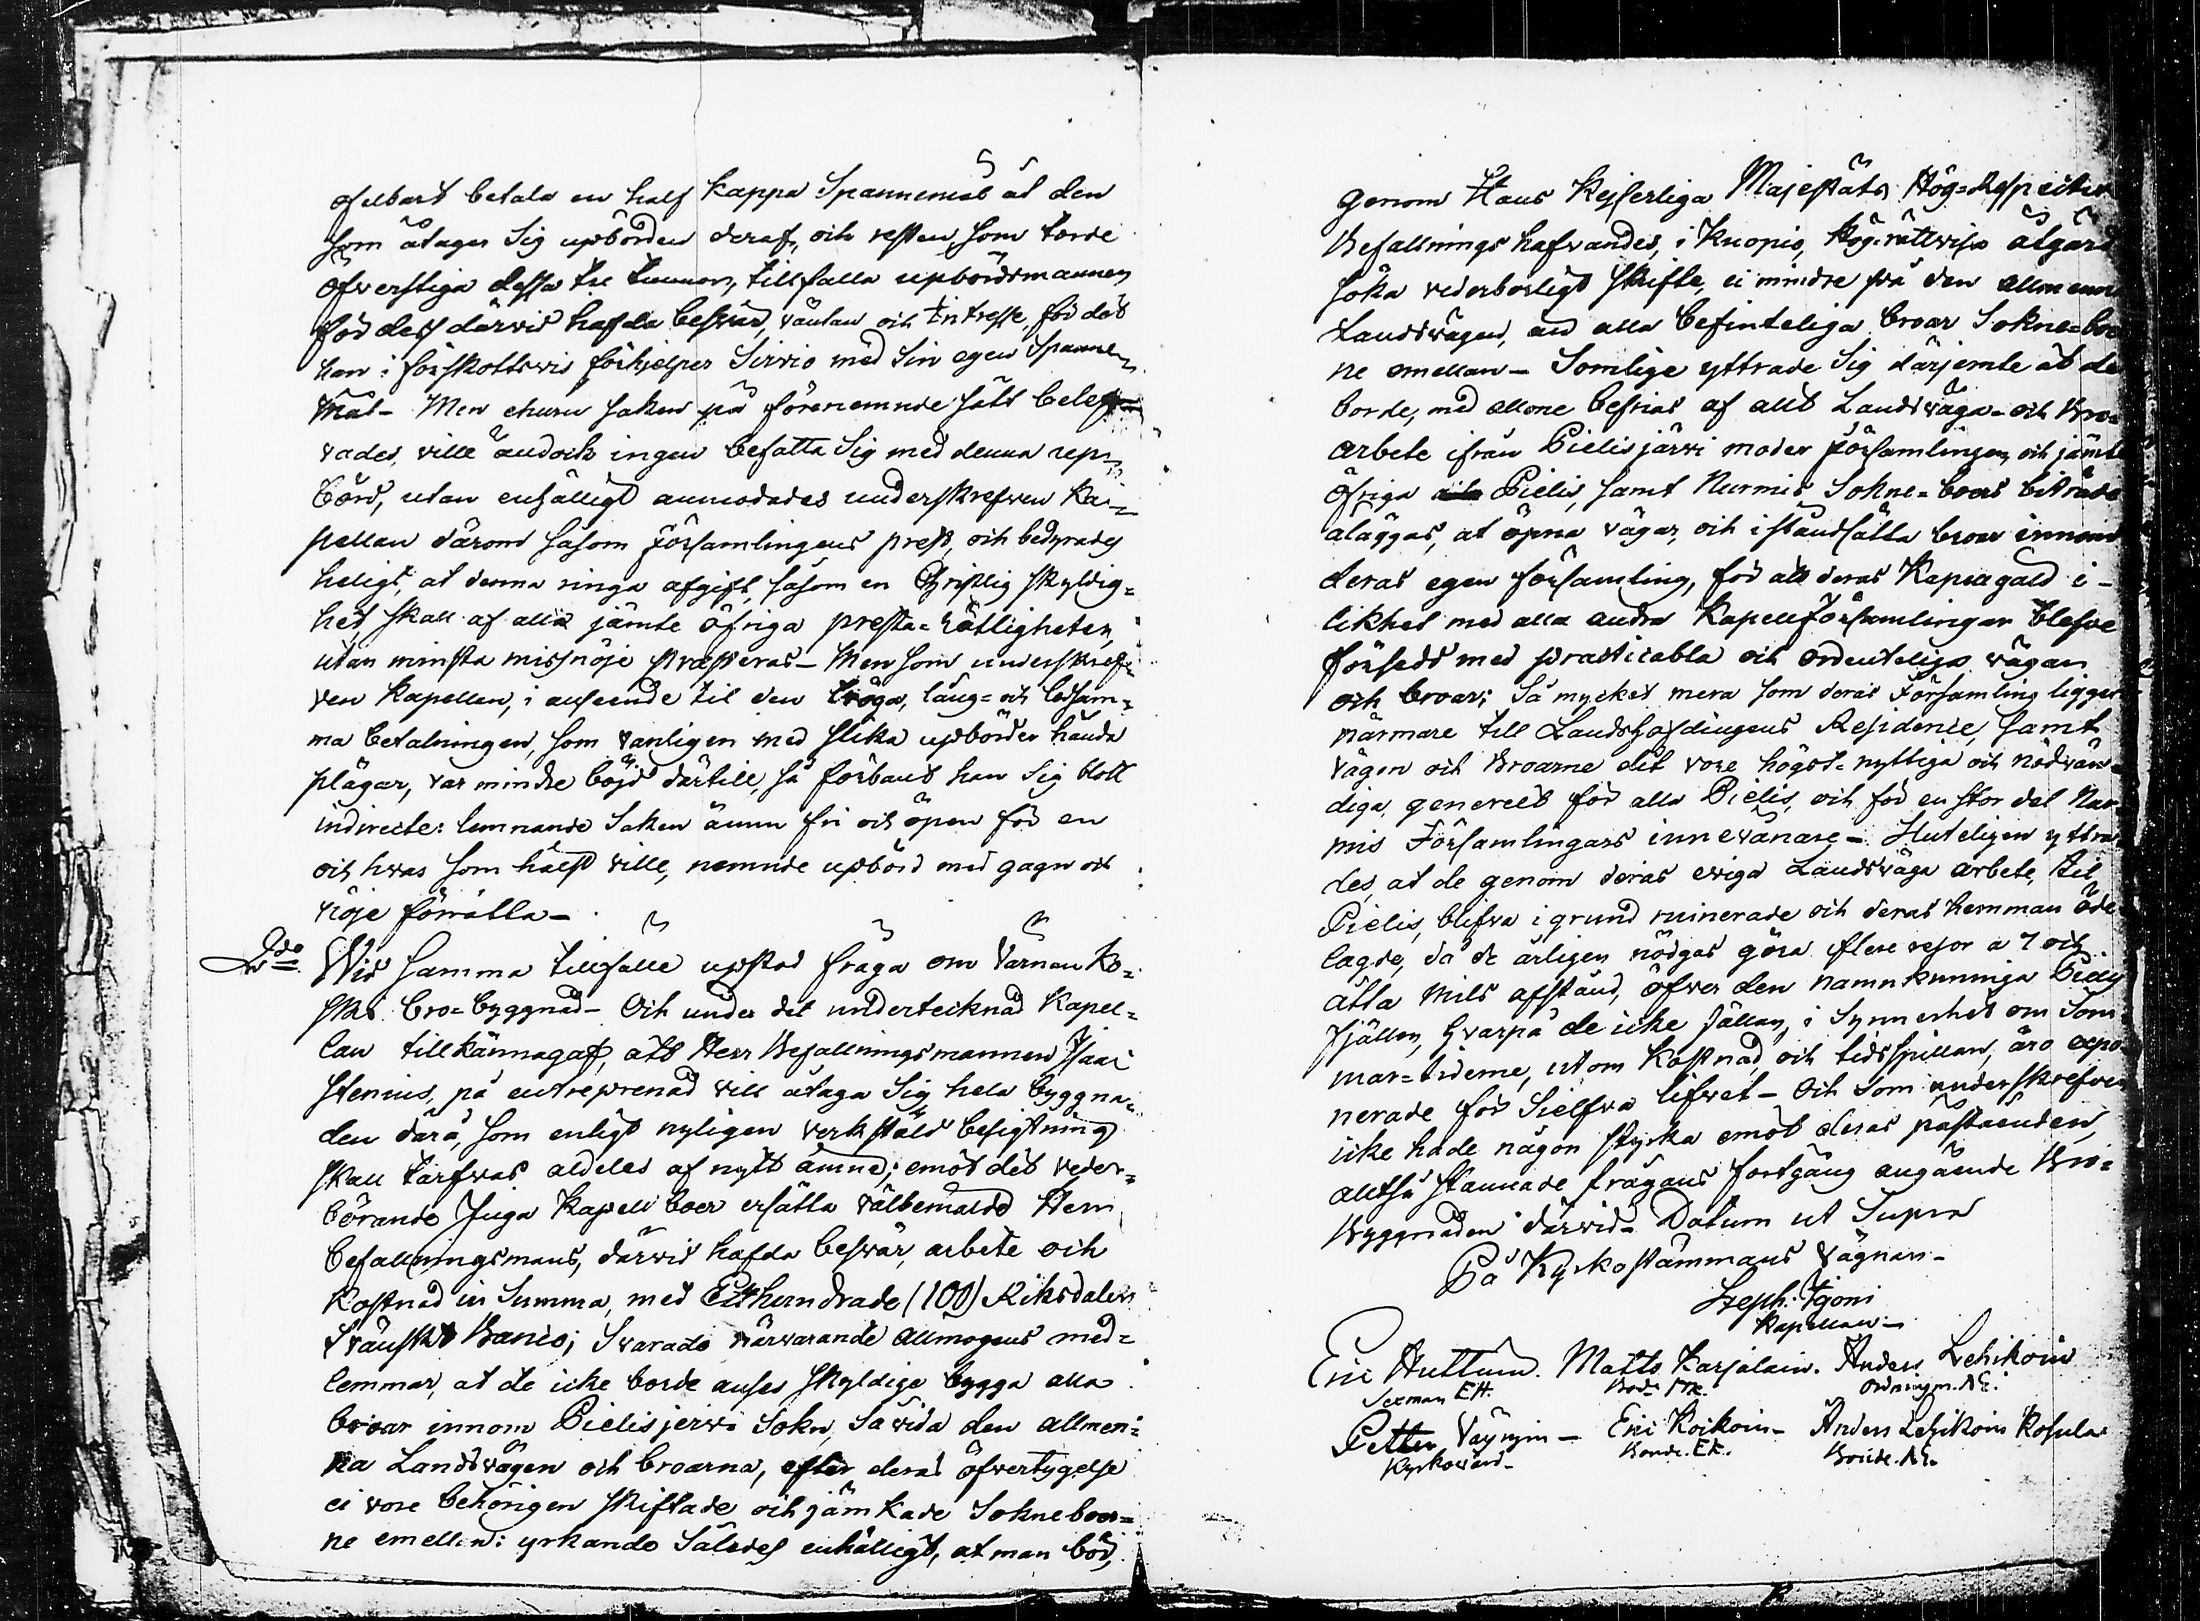 ofelbart betala en half kappa Spannemål åt den
som åtager Sig upbörden deraf, och resten, som torde
öfverstiga dessa tre tunnor, tillfalla upbördsmannen
för dess därvid hafda besvär, väntan och Intresse, för det
han i förskottsvis förhjelper Sirviö med sin egen Spanne-
mål - Men churu saken på förenemnde sätt belef-
vades, ville ändock ingen befatta Sig med denna up-
börd, utan enhälligt anmodades underskrefven Ka-
pellan därom såsom församlingens prest, och bedyrades
heligt, at denna ringa afgift, såsom en Christlig skyldig-
het, skall af alla jämte öfriga presta-rättigheter,
utan minsta missnöje præsteras - Men som underskref-
ven Kapellan, i anseende til den tröga, lång- och ledsam-
ma betalningen, som vanligen med slika upbörder hända
plägar, var mindre böjd därtill, så förband han Sig blott
indirecte: lemnande Saken ännu fri och öpen för en
och hvar som hälst ville, nemnde upbörd med gagn och
nöje förrätta -
2do Wid samma tillfälle upstod fråga om Värnän ko-
ski bro-byggnad - Och under det undertecknad Kapel-
lan tillkännagaf, att Herr Befallningsmannen Isaac
Stenius, på entreprenad vill åtaga Sig hela byggna-
den därå, som enligt nyligen verkstäld besigtning
skall tarfvas aldeles af nytt ämne; emot det veder-
börande Juga Kapell boer ersätta välbemälde Herr
befallningsmans, därvid hafda besvär, arbete och
kostnad in Summa, med Etthundrade (100) Riksdaler
Svänskt Banco; Svarade närvarande allmogens med-
lemmar, at de icke borde anses skyldige bygga alla
broar innom Pielisjerwi Sokn, så vida den allmen-
na Landsvägen och broarna, efter deras öfvertygelse
ei vore behörigen skiftade och jämkade Sokneboer-
ne emellan: yrkande Således enhälligt, at man bör,
genom Hans Kejserliga Majestäts Hög-Respective
Befallningshafvandes, i Kuopio, Hög-rättvisa åtgärd
söka vederborligt skifte, ei mindre på den allmenna
Landsvägen, än alla befinteliga broar Sokne-boer
ne emellan - Somlige yttrade Sig därjemte at de
borde, med allone befrias af allt Landsväga- och Bro-
arbete ifrån Pielisjärvi moder församlingen, och jämte
öfriga Pielis, samt Nurmis Sokne-boers biträde
åläggas, at öpna vägar, och i ståndsätta broar innom
deras egen församling, för att deras Kapeagäld i-
likhet med alla andra Kapellförsamlingar blefve
försedd med practicabla och ordenteliga vägar
och broar; Så mycket mera som deras Församling ligger
närmare till Landshofdingens Residence, samt
vägen och Broarne dit vore högst-nyttiga och nödvän-
diga, generelt för alla Pielis, och för en stor del Nur-
mis Församlingars innevånare - Huteligen yttra-
des, at de genom deras eviga Landsväga arbete, til
Pielis, blifva i grund ruinerade och deras hemman öde-
lagde, då de årligen nödgas göra flere resor a 7 och
åtta mils afstånd, öfver den namnkunniga Pielis
Fjällen, hvarpå de icke sällan, i Synnerhet om Som-
mar-tiderne, utom kostnad, och tidsspillan, äro expo-
nerade för Sielfva lifvet - Och som underskrefven
icke hade någon styrka emot deras påståenden,
alltså stannade frågans fortgång angående Bro-
Byggnaden därvid - Datum ut Supra
På Kyrkostämmans Vägnar -
Steph. Igoni
Kapellan -
Eric Huttun. Matts Karjalain. Anders Lehikoin
Sexman EH. Ordningm. NE.
Petter Väyryin - Eric Koikoin - Anders Lehikoin Kosula
Kyrkovärd - Bonde. EK. Bonde. NE.